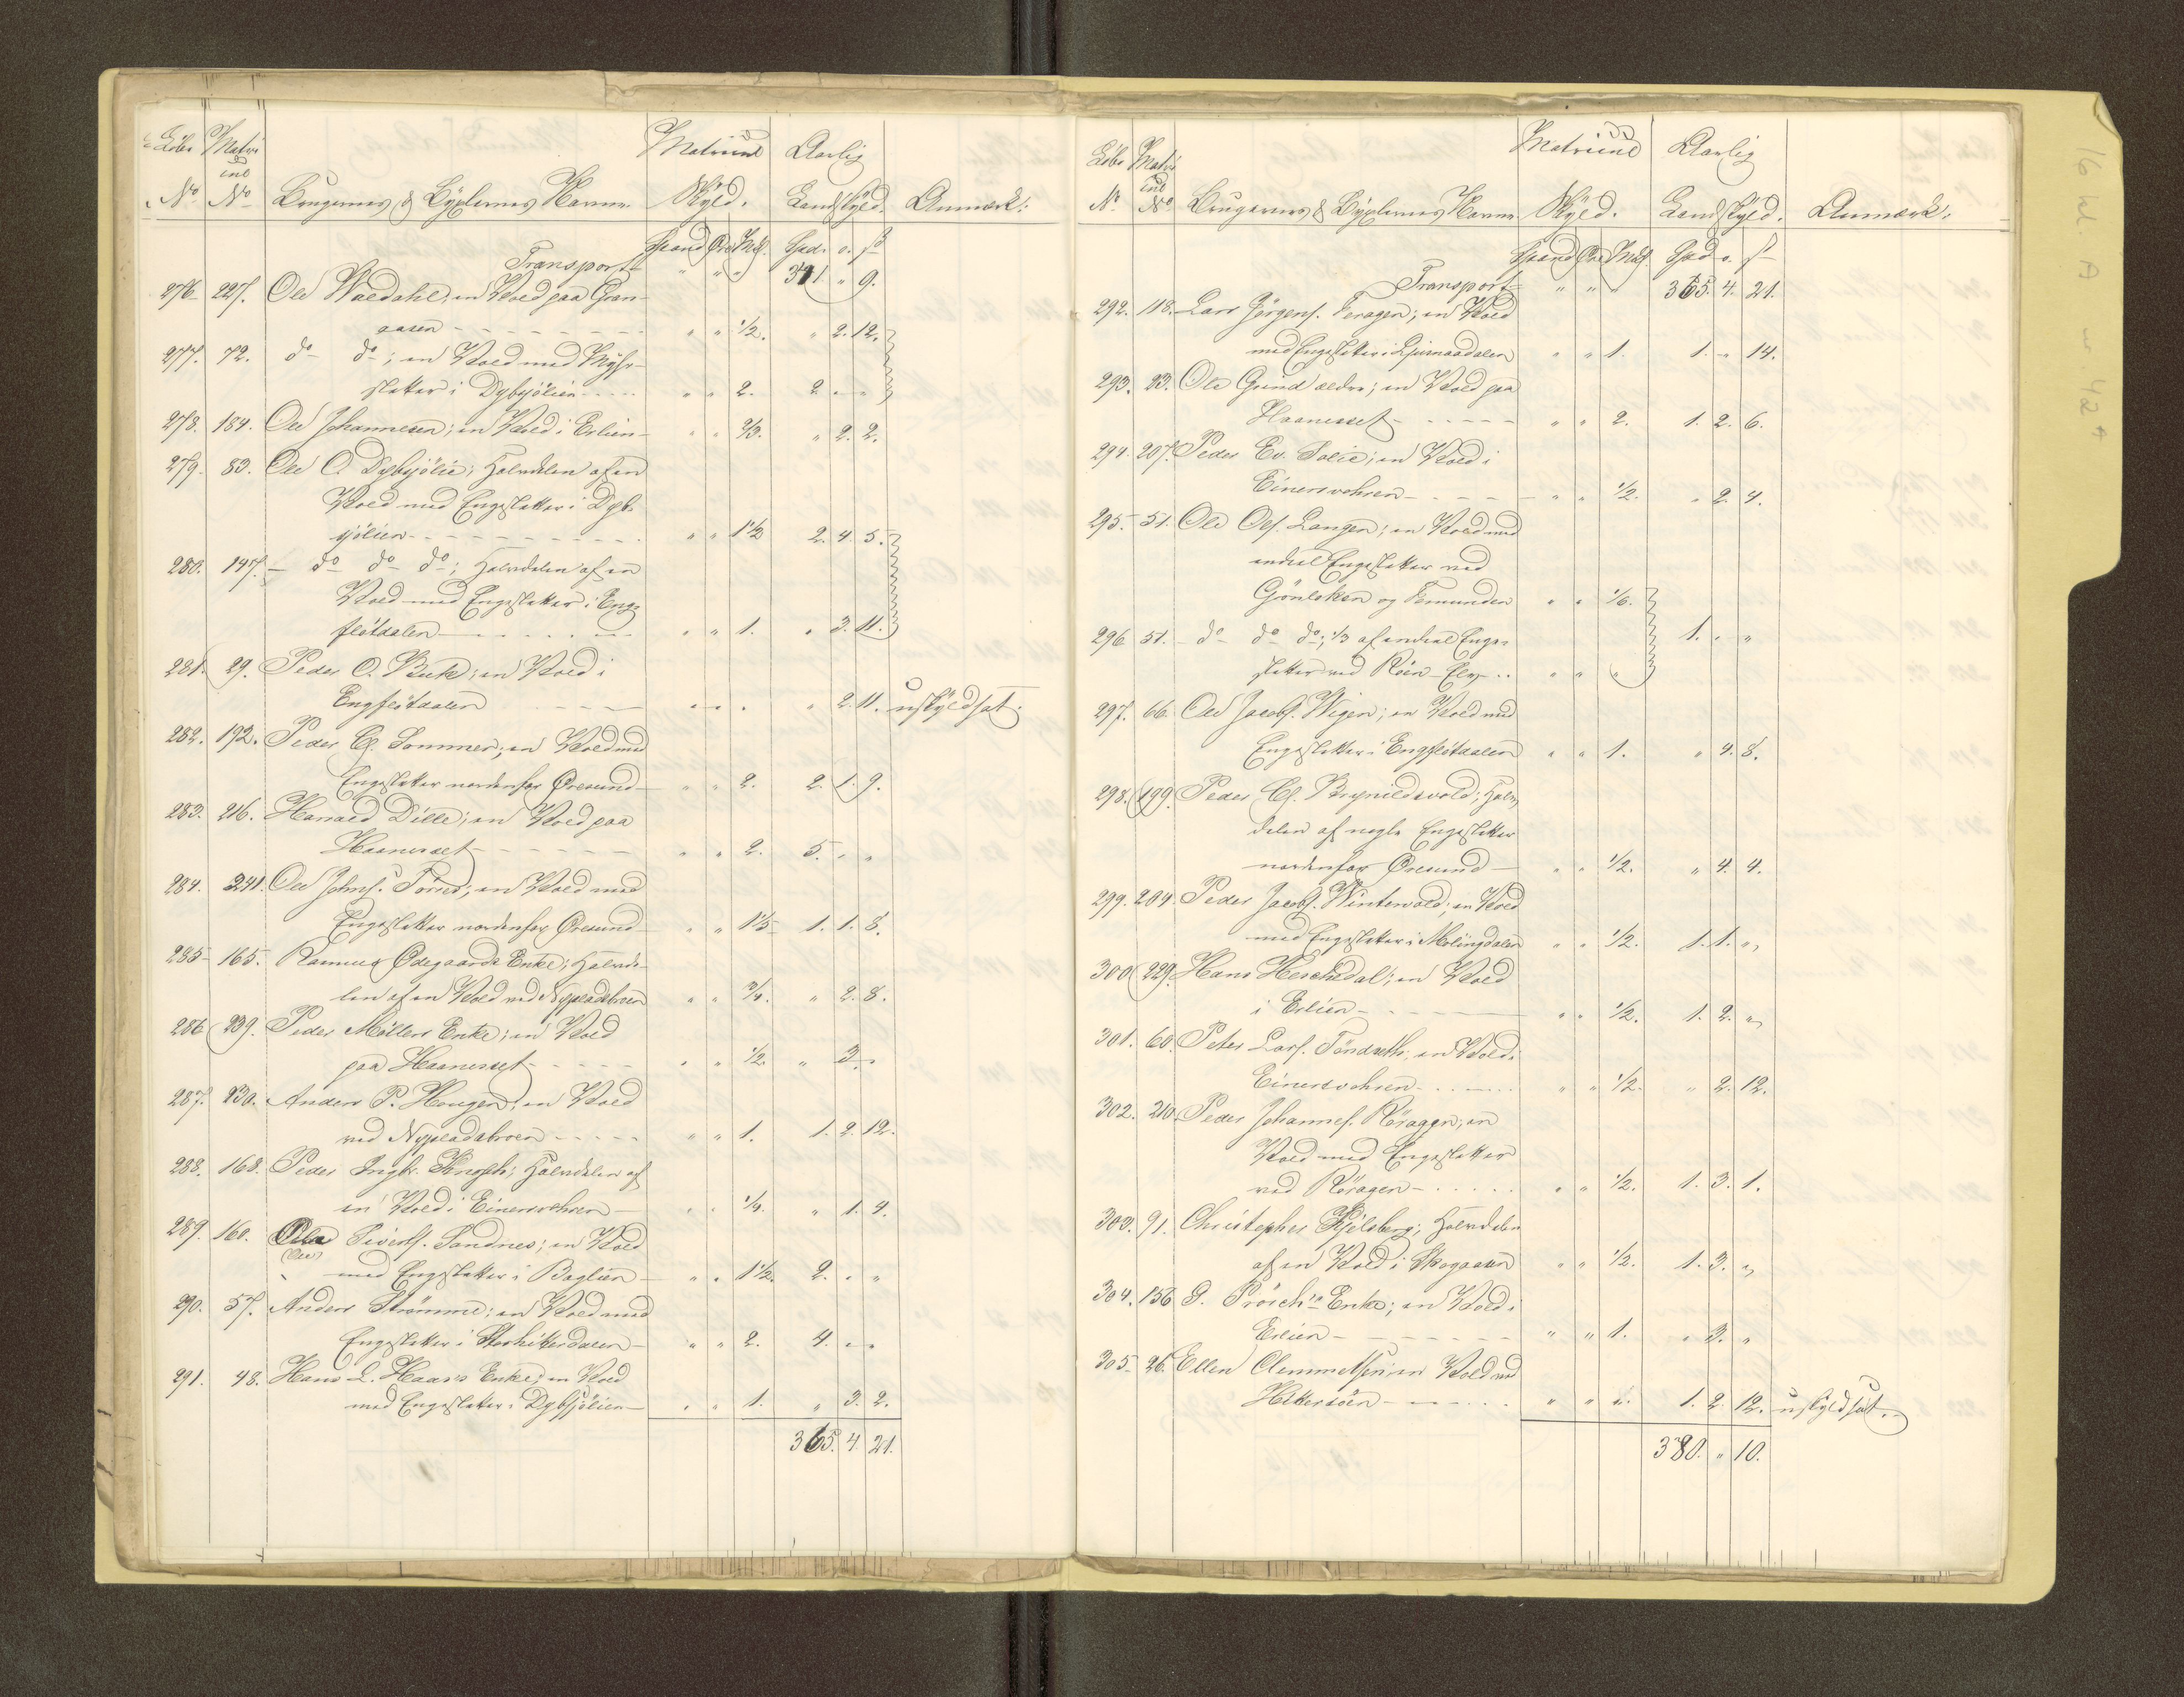 Löbe Matri Matriinl Aarlig
inl
No. No. Brugernes & Byxlernes Navne. Skyld. Landskyld. Anmærk:
Spand Øre Mkl. Spd. o. ß
Transport " " " 341. " 9.
276. 227. Ole Waldahl, en Vold paa Gran-
aasen " " 1/2. " 2. 12.
277. 72. do do; en Vold med Myhr-
sletter i Dybsjölien " " 2. 2. " "
278. 184. Ole Johannesen; en Vold i Erlien " " 2/3. " 2. 2.
279. 83. Ole O. Dybsjölie; Halvdelen af en
Vold med Engesletter i Dyb-
sjölien " " 1 1/2 2. 4. 5.
280. 147. do do do; Halvdelen af en
Vold med Engesletter i Eng-
flötdalen " " 1. " 3. 11.
281. 29. Peder O. Buk; en Vold i
Engflötdalen " " " " 2. 11. uskyldsat.
282. 192. Peder Cl. Sommer; en Vold med
Engesletter nordenfor Öresund " " 2. 2. 1. 9.
283. 216. Harald Dille; en Vold paa
Haanesset " " 2. 5. " "
284. 241. Ole Johns. Torres; en Vold med
Engesletter nordenfor Öresund " " 1 1/5 1. 1. 8.
285. 165. Rasmus Ødegaards Enke; Halvde-
len af en Vold ved Nypladsbroen " " 3/4. " 2. 8.
286. 239. Peder Möllers Enke; en Vold
paa Haanesset " " 1/2. " 3. "
287. 230. Anders P. Hougen; en Vold
ved Nypladsbroen " " 1. 1. 2. 12.
288. 168. Peder Ingbr. Knoph; Halvdelen af
en Vold i Einersvohlen " " 1/4. " 1. 4.
289. 160. Ola Siverts. Sandnes; en Vold
(Ole)
med Engesletter i Boglien " " 1 1/2. 2. " "
290. 57. Anders Strömme; en Vold med
Engesletter i Storhittersdalen " " 2. 4. " "
291. 48. Hans L. Haas's Enke; en Vold
med Engesletter i Dybsjölien " " 1. " 3. 2.
365. 4. 21.
Löbe Matri Matriinl Aarlig
inl
No. No. Brugernes & Byxlernes Navne Skyld. Landskyld. Anmærk.
Spand Øre Mkl. Spd. o. ß
Transport " " " 365. 4. 21.
292. 118. Lars Jörgens. Feragen; en Vold
med Engesletter i Ljusnaadalen " " 1. 1. " 14.
293. 93. Ole Grind ældre; en Vold paa
Haanesset " " 2. 1. 2. 6.
294. 207. Peder Ev. Solie; en Vold i
Einersvohlen " " 1/2. " 2. 4.
295. 51. Ole Ols. Langen; en Vold med
endeel Engesletter ved
Grönloken og Femunden " " 1/6.
296. 51. do do do; 1/3 af endeel Enge-
sletter ved Röen-Elv " " " 1. " "
297. 66. Ole Jacobs. Wigen; en Vold med
Engesletter i Engflötdalen " " 1. " 4. 8.
298. 199. Peder Cl. Brynildsvold; Halv-
delen af nogle Engesletter
nordenfor Öresund " " 1/2. " 4. 4.
299. 204. Peder Jacobs. Wintervold; en Vold
med Engesletter i Molingdalen " " 1/2. 1. 1. "
300. 229. Hans Heschedal; en Vold
i Erlien " " 1/2. 1. 2. "
301. 60. Peter Lars. Töndseth; en Vold i
Einersvohlen " " 1/2. " 2. 12.
302. 210. Peder Johannes. Röragen; en
Vold med Engesletter
ved Röragen " " 1/2. 1. 3. 1.
303. 91. Christopher Kjelsberg; Halvdelen
af en Vold i Skogaasen " " 1/2. 1. 3. "
304. 156. G. Prösch's Enke; en Vold i
Erlien " " 1. " 3. "
305. 26. Ellen Clemmetsen; en Vold ved
Hittersöen " " " 1. 2. 12. uskyldsat.
380. " 10.
16 kl A nr 424